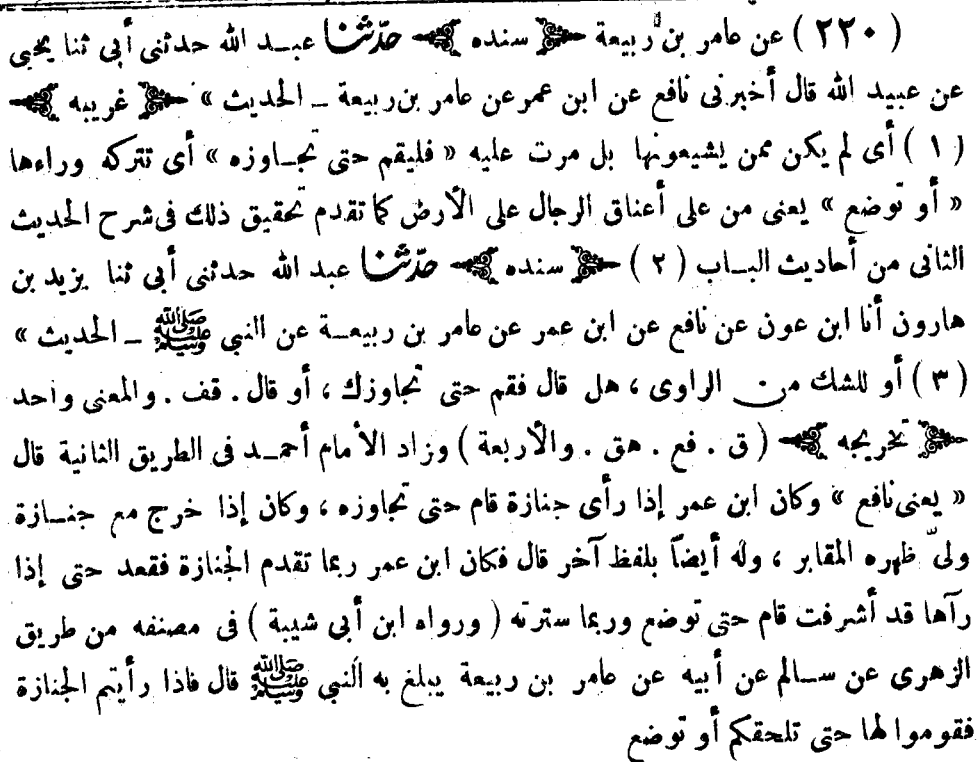 ( ٢٢٠ ) عن عامر بن ربيعة ﴿ سنده ﴾ حدّثنا عبد الله حدثنى أبى ثنا يحيى
عن عبيد الله قال أخبرنى نافع عن ابن عمر عن عامر بن ربيعة ـ الحديث » ﴿ غريبه ﴾
( ١ ) أى لم يكن ممن يشيعونها بل مرت عليه « فليقم حتى تجاوزه » أى تتركه وراءها
« أو توضع » يعنى من على أعناق الرجال على الأرض كما تقدم تحقيق ذلك فى شرح الحديث
الثانى من أحاديث الباب ( ٢ ) ﴿ سنده ﴾ حدّثنا عبد الله حدثنى أبى ثنا يزيد بن
هارون أنا ابن عون عن نافع عن ابن عمر عن عامر بن ربيعة عن النبي ﷺ ـ الحديث »
( ٣ ) أو للشك من الراوى ، هل قال فقم حتى تجاوزك ، أو قال . قف . والمعنى واحد
﴿ تخريجه ﴾ ( ق . فع . هق . والأربعة ) وزاد الأمام أحمد فى الطريق الثانية قال
« يعنى نافع » وكان ابن عمر إذا رأى جنازة قام حتى تجاوزه ، وكان إذا خرج مع جنازة
ولىّ ظهره المقابر ، وله أيضاً بلفظ آخر قال فكان ابن عمر ربما تقدم الجنازة فقعد حتى إذا
رآها قد أشرفت قام حتى توضع وربما سترته ( ورواه ابن أبى شيبة ) فى مصنفه من طريق
الزهرى عن سالم عن أبيه عن عامر بن ربيعة يبلغ به النبي ﷺ قال فاذا رأيتم الجنازة
فقوموا لها حتى تلحقكم أو توضع